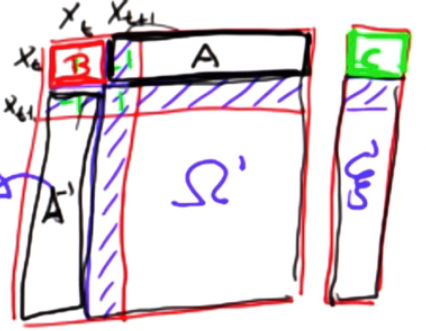 X_t X_{t+1}
X_t B -1 A C
X_{t+1} -1 1
A^{-1} Ω' ξ'